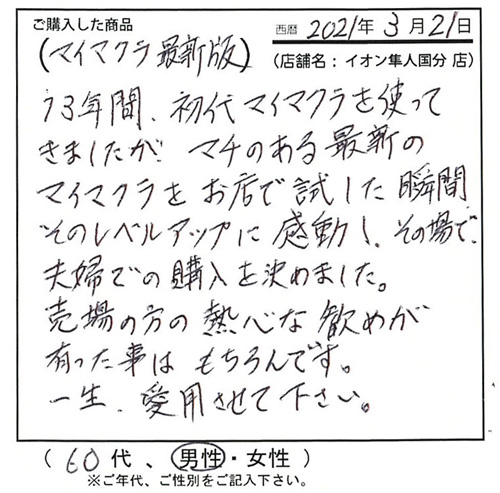 ご購入した商品
西暦 2021年 3月21日
(マイマクラ最新版)
(店舗名:イオン隼人国分 店)
13年間、初代マイマクラを使って
きましたが マチのある最新の
マイマクラをお店で試した瞬間
そのレベルアップに感動し、その場で、
夫婦での購入を決めました。
売場の方の熱心な歓めが
有った事は もちろんです。
一生、愛用させて下さい。
(60代、男性・女性)
※ご年代、ご性別をご記入下さい。